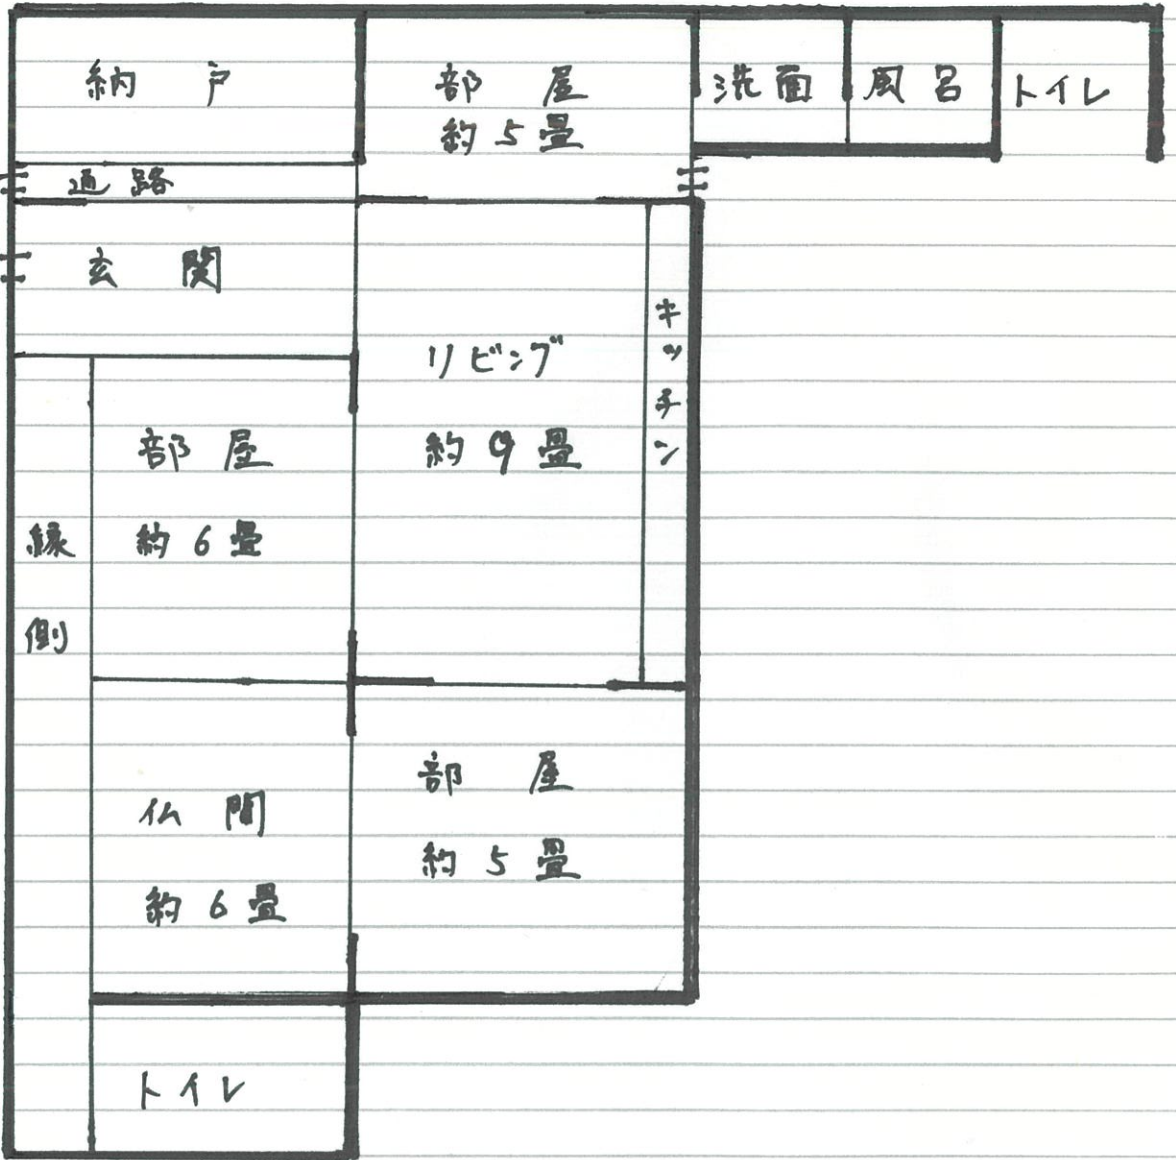 納戸
部屋
約5畳
洗面
風呂
トイレ
通路
玄関
リビング
約9畳
キッチン
部屋
約6畳
縁側
仏間
約6畳
部屋
約5畳
トイレ